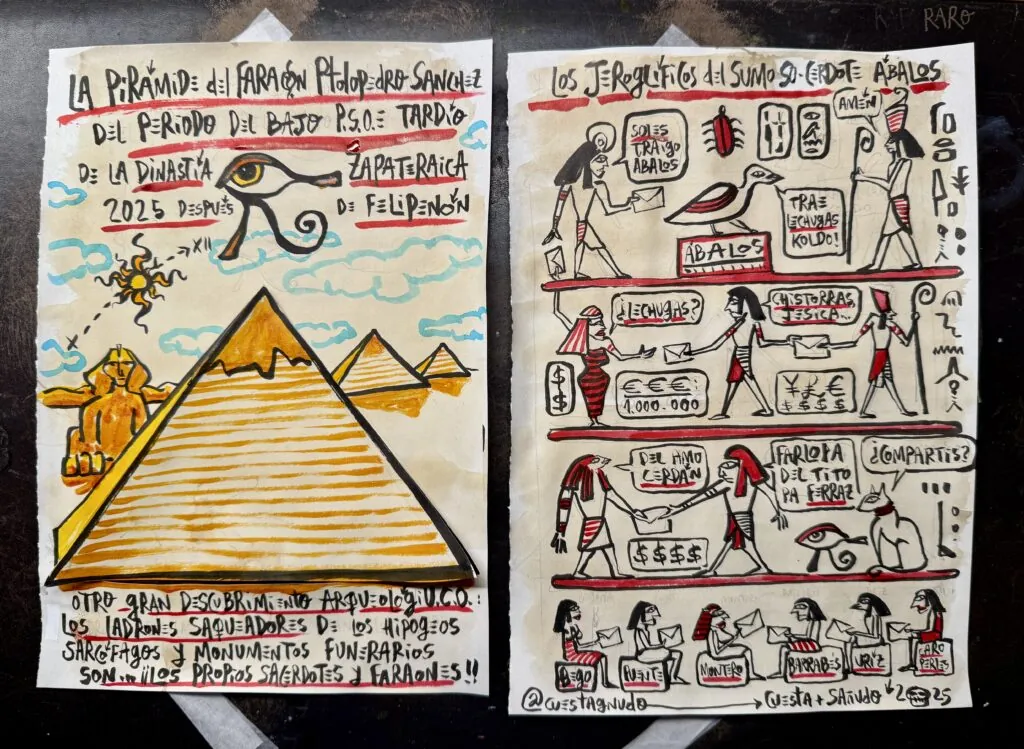 LA PIRÁMIDE del FARAÓN PtolOPEDRO SÁNCHEZ
DEL PERIODO DEL BAJO P.S.O.E TARDÍO
DE LA DINASTÍA ZAPATERAICA
2025 DESPUÉS DE FELIPENÓN
X
XII
OTRO GRAN DESCUBRIMIENTO ARQUEOLÓGIU.C.O.:
LOS LADRONES SAQUEADORES DE LOS HIPOGEOS
SARCÓFAGOS Y MONUMENTOS FUNERARIOS
SON... ¡¡LOS PROPIOS SACERDOTES Y FARAONES!!
RARO
LOS JEROGLÍFICOS del SUMO SA·CERDOTE ÁBALOS
SOLES
TRAIGO
ÁBALOS
AMÉN
TRAE
LECHUGAS
KOLDO!
ÁBALOS
¿LECHUGAS?
CHISTORRAS,
JÉSICA...
$
$
€€€:
1.000.000
¥£€
$$$$
DEL AMO
CERDÁN
FARLOPA
DEL TITO
PA FERRAZ
¿COMPARTÍS?
$$$$
BEGO
PUENTE
MONTERO
BARRABÉS
URÍZ
CARO
PERLES
@CUESTAGNUDO
CUESTA + SAÑUDO 2025